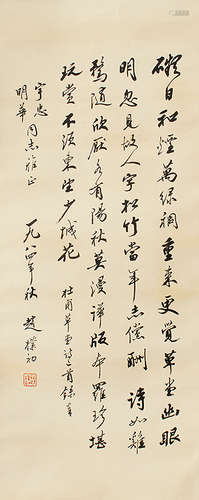 礙日和煙萬綠稠重來更覺草堂幽眼
明忽見故人字松竹當年志償酬詩如雞
鶩隨欣厭各有陽秋莫漫評版本羅珍堪
玩賞不須東望少城花
杜甫草堂詩二首錄奉
宇忠
明華同志雅正
一九八四年秋
趙樸初